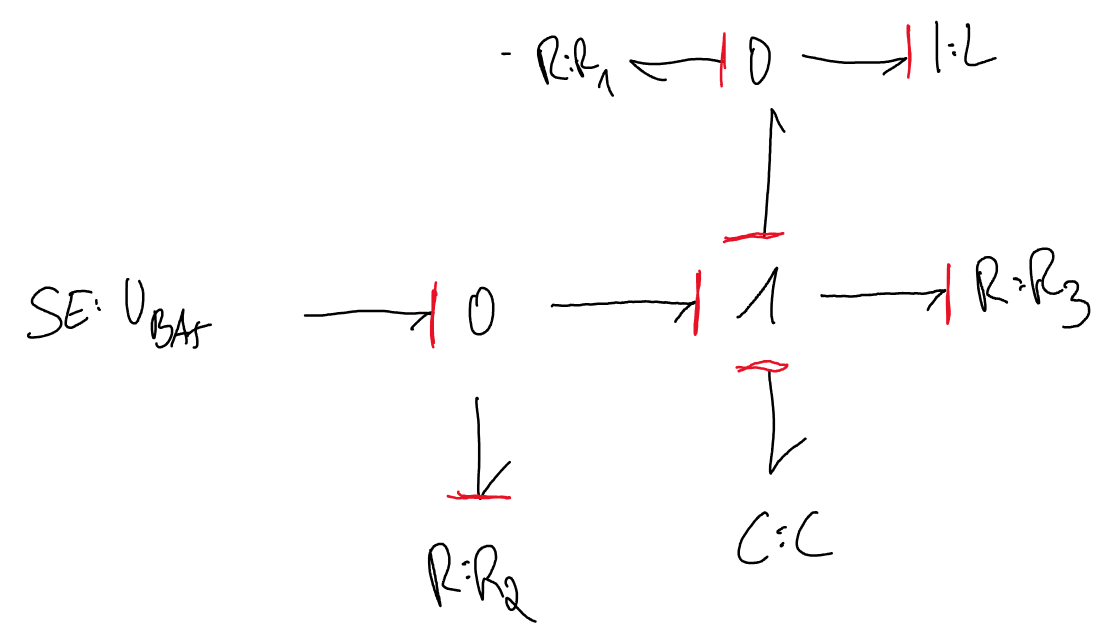 - R:R1 0 I:L
SE: UBAT 0 1 R:R3
R:R2 C:C